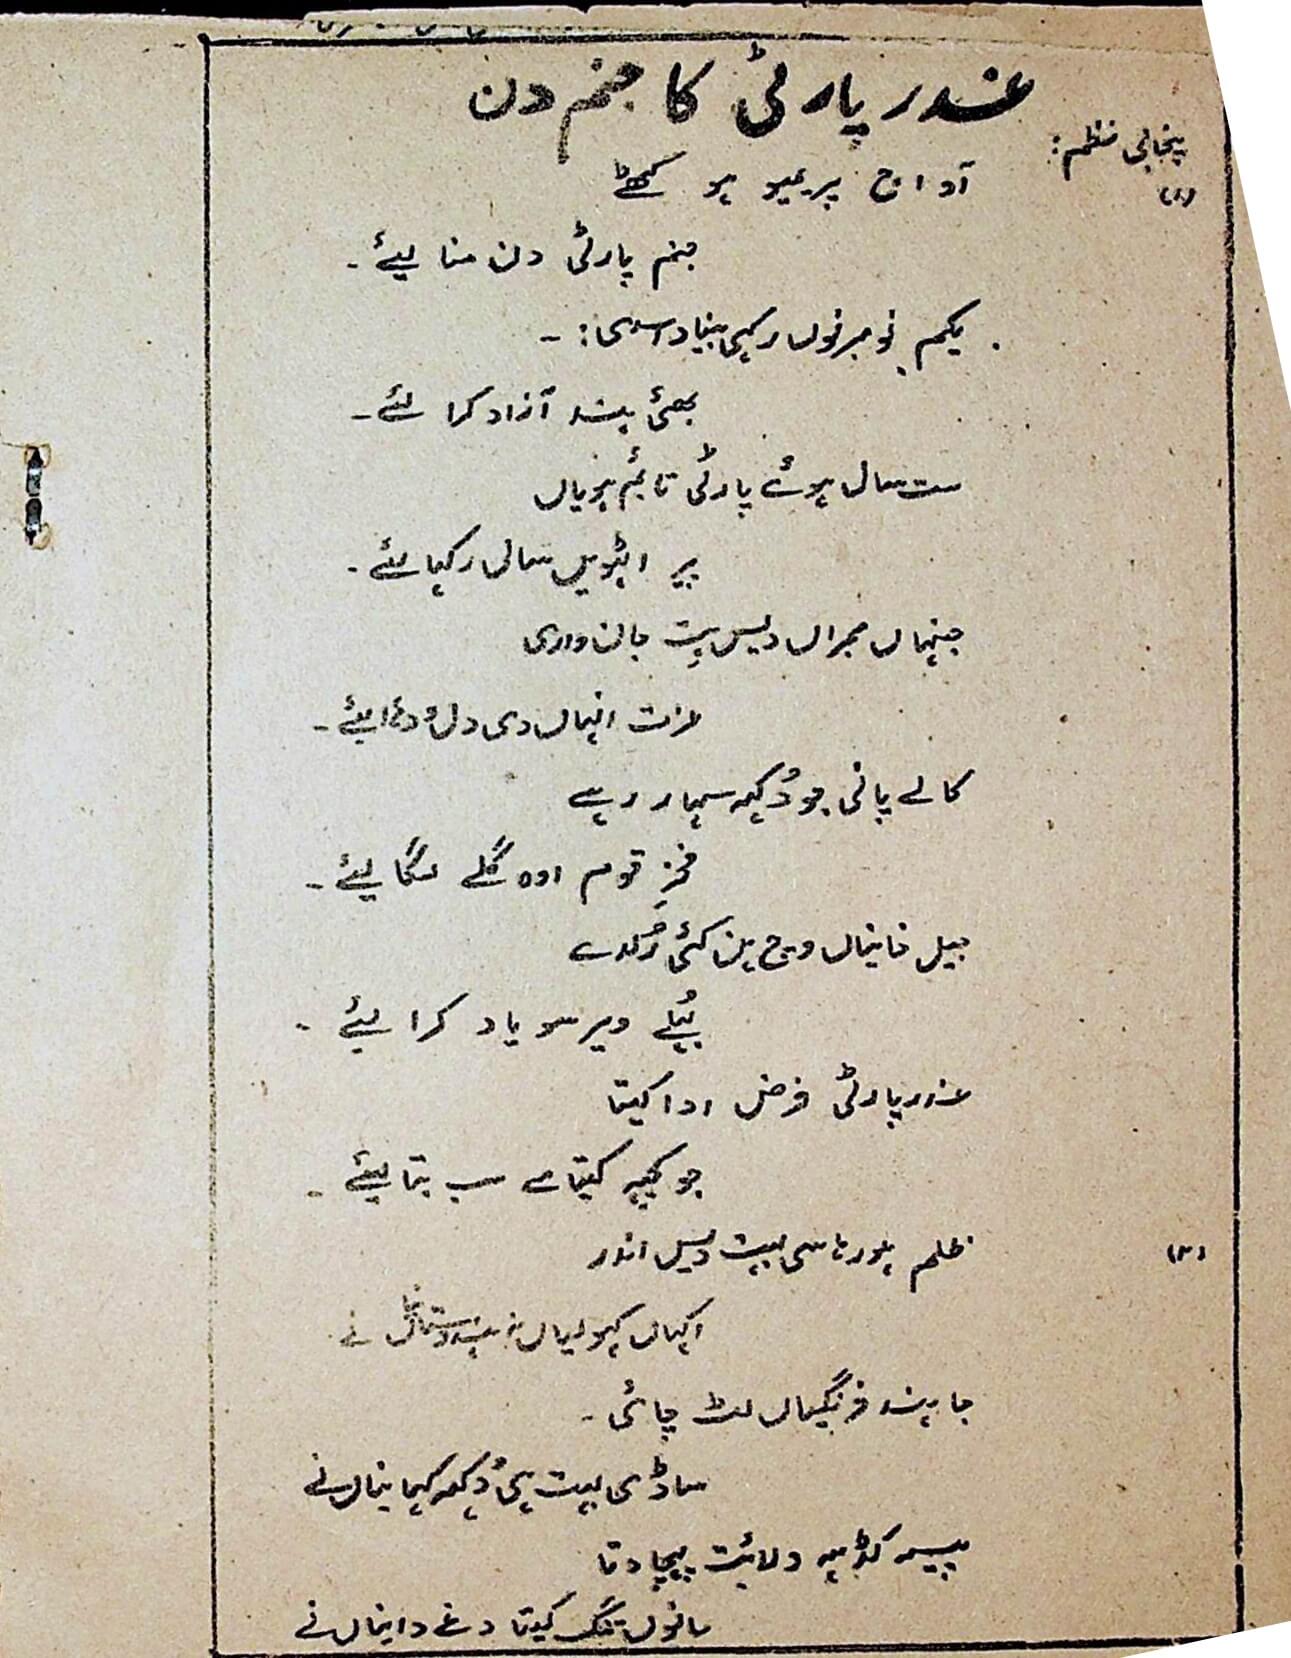 غدر پارٹی کا جنم دن
پنجابی نظم:
(۱)
آؤ اج پریمیو ہو کٹھے
جنم پارٹی دن منا لیئے۔
یکم نومبر نوں رکھی بنیاد اسدی:۔
بھئی ہند آزاد کرا لئے۔
ست سال ہوئے پارٹی قائم ہویاں
جنہاں ممبراں دیس ہِت جان واری
عزت انہاں دی دل
کالے پانی جو دُکھ سہار رہے
فخرِ قوم اوہ گلے لگا لیئے۔
جیل خانیاں وچ ہن کئی رُلدے
بُھلے ویر سو یاد کرا لیئے۔
غدر پارٹی فرض ادا کیتا
جو کچھ کیتا سب بتا لیئے۔
ظلم ہو رہا سی بہت دیس اندر
اکھاں کھولیاں
جا ہند فرنگیاں لٹ چائی۔
ساڈی بہت ہی دُکھ
پیسہ کڈھ ولائت پہنچا دتا
سانوں تنگ کیتا دغے دایناں نے